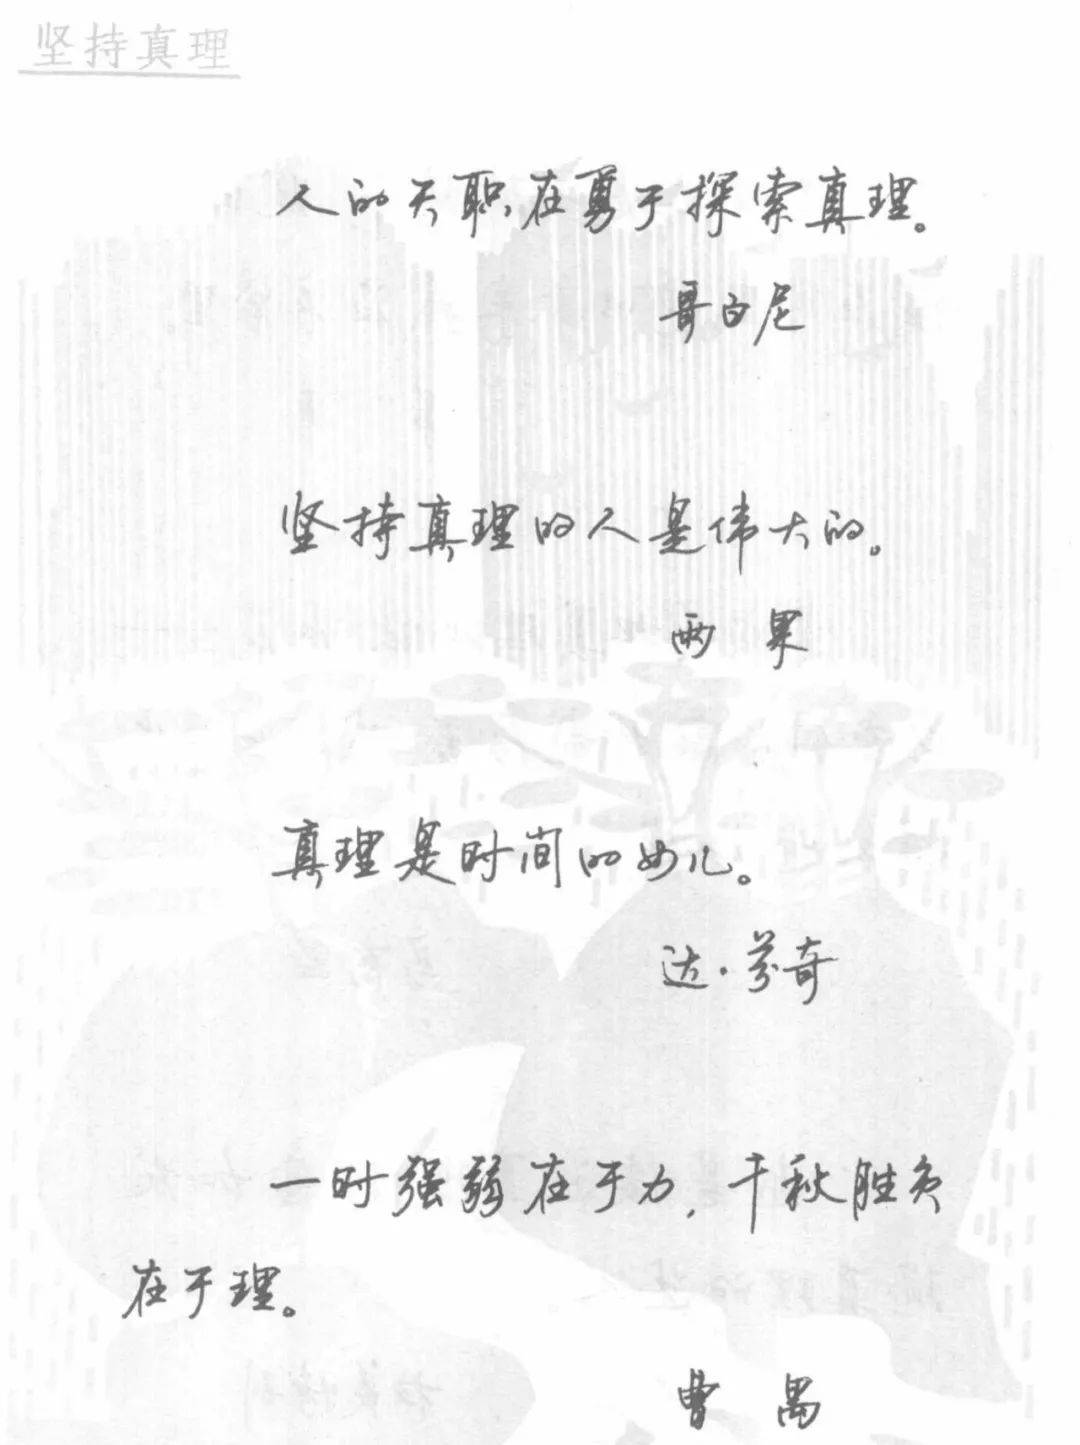 坚持真理
人的天职在勇于探索真理。
哥白尼
坚持真理的人是伟大的。
雨果
真理是时间的女儿。
达·芬奇
一时强弱在于力,千秋胜负
在于理。
曹禺